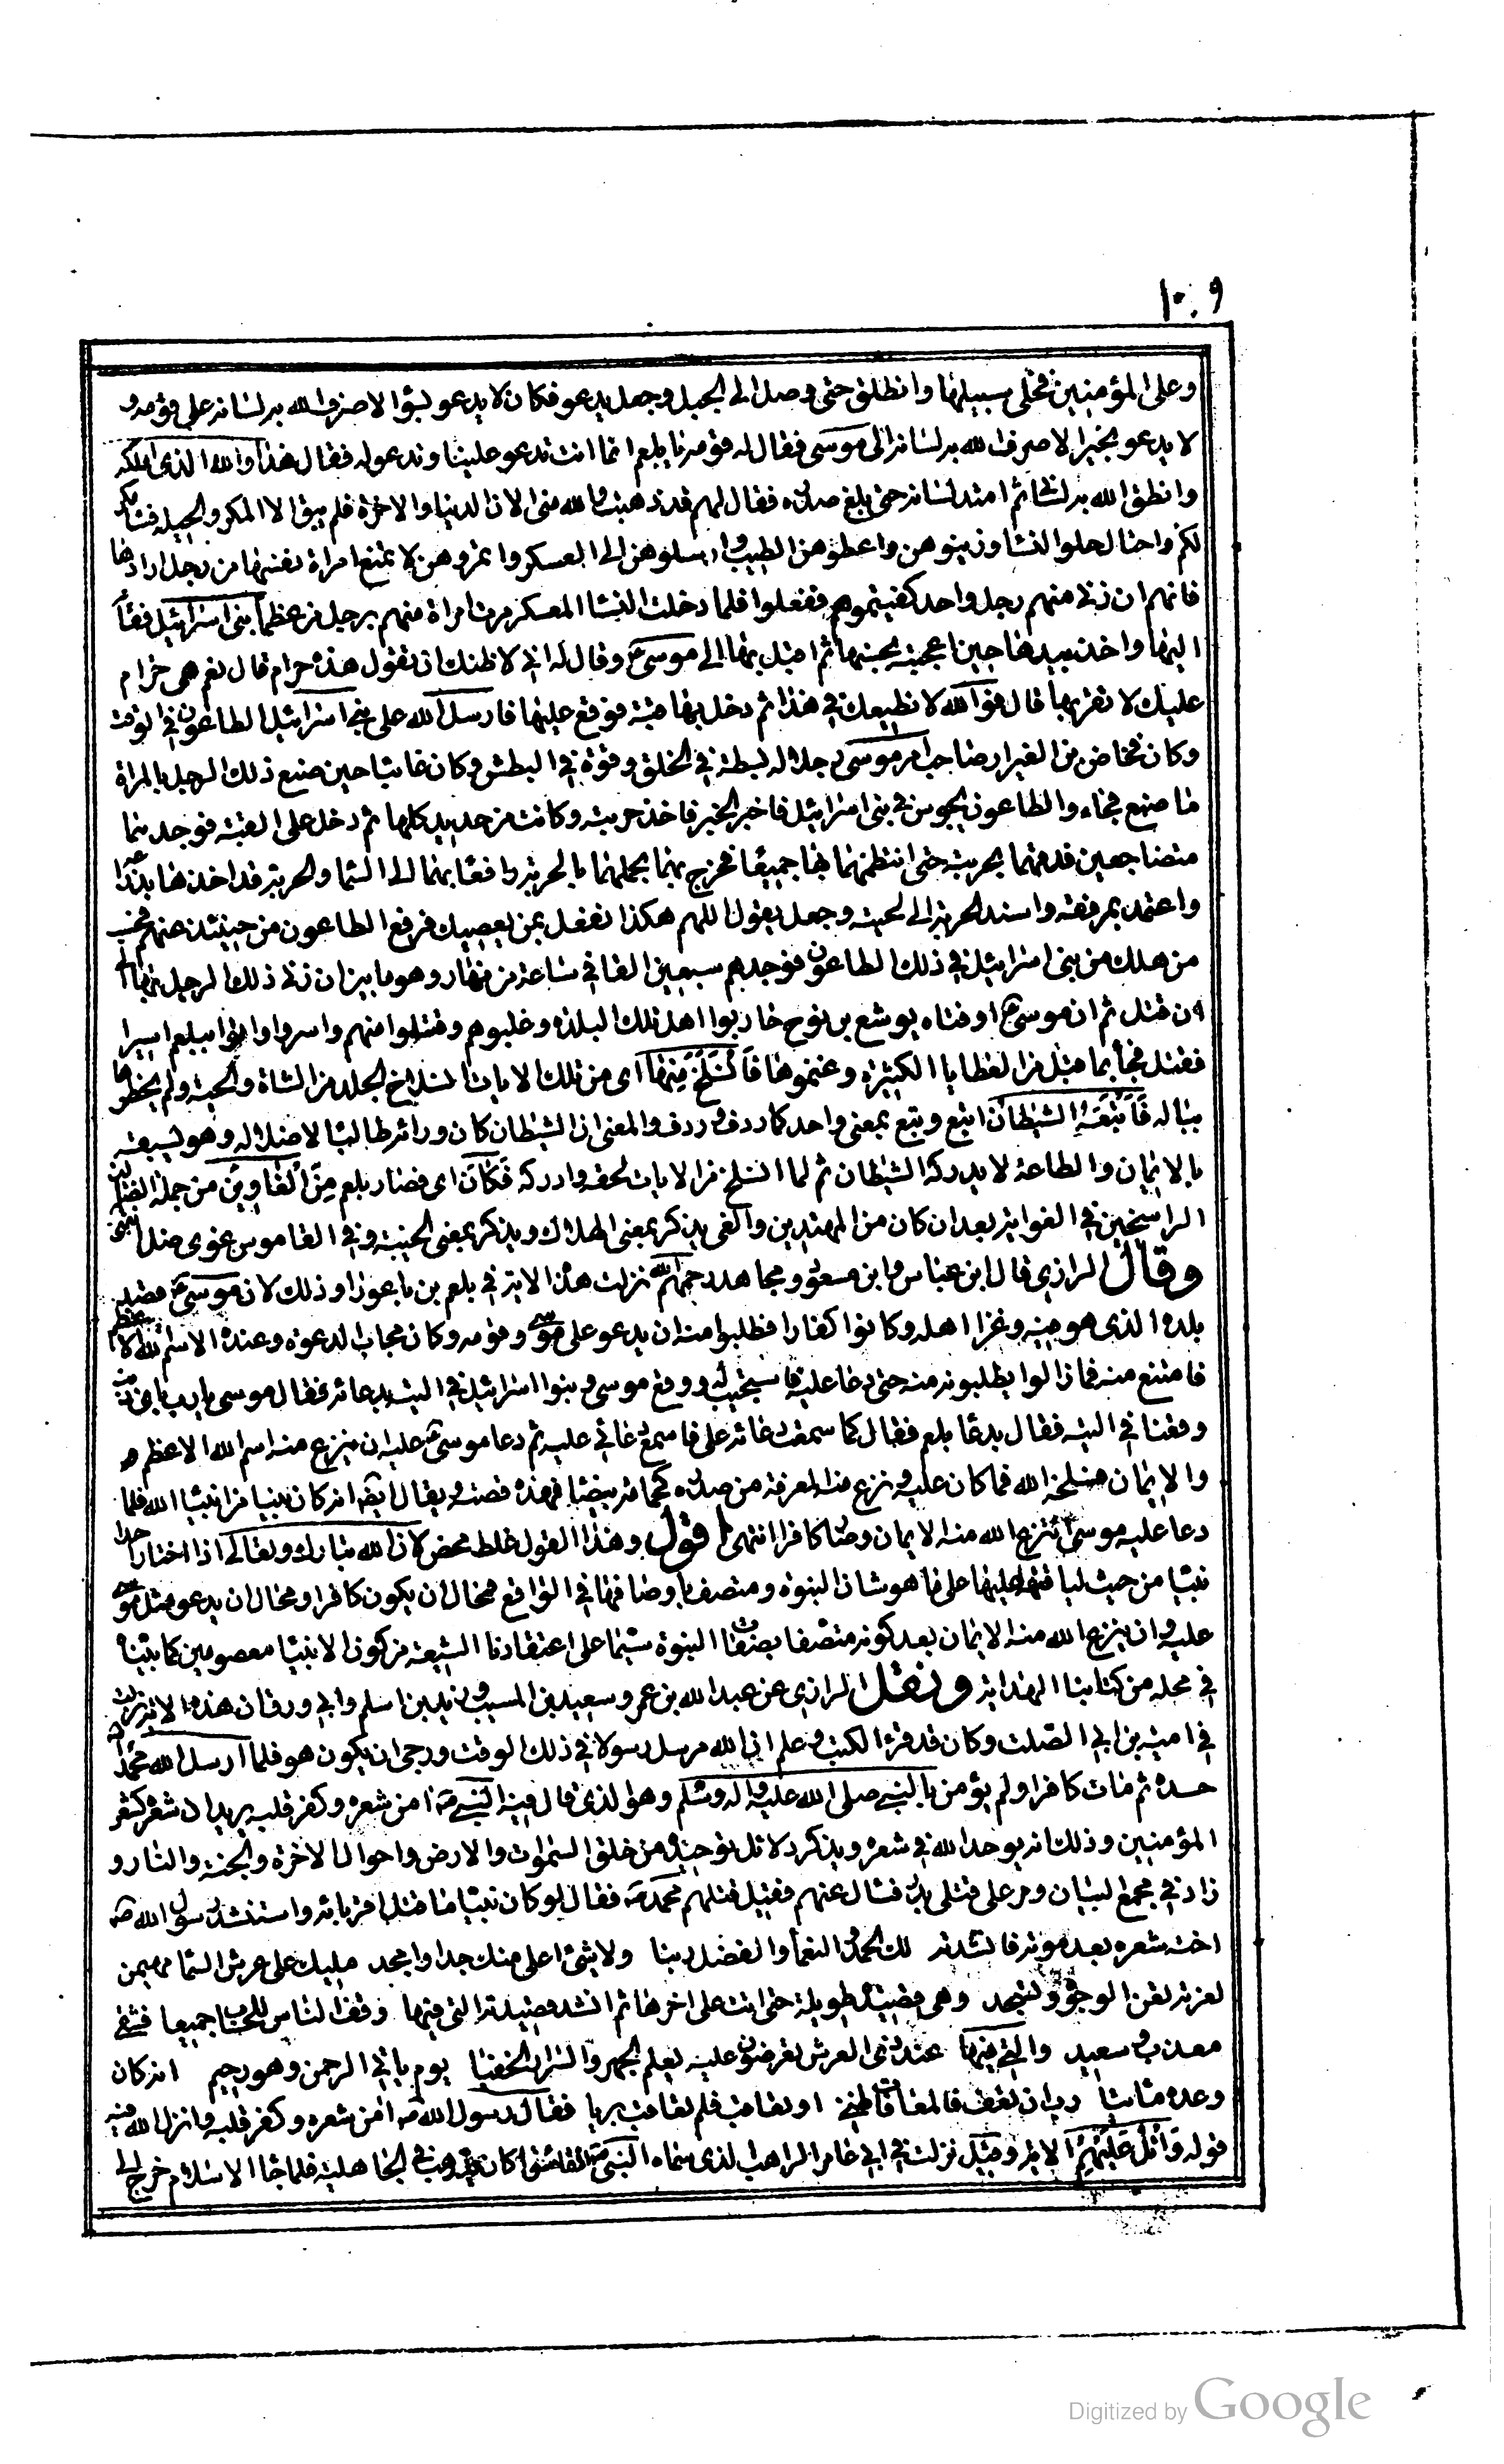 و ١٠
وعلى المؤمنين فخلى سبيلها وانطلق حتى وصل الى الجبل وجعل يدعو فكان لا يدعو بسوء الا صرف الله به لسانه على قومه و
لا يدعو بخير الا صرف الله به لسانه الى موسى فقال له قومه يا بلعم انما انت تدعو علينا وتدعو له فقال هذا والله الذى املكه
وانطق الله به لسانى ثم امتد لسانه حتى بلغ صدره فقال لهم قد ذهبت والله منى الان الدنيا والاخرة فلم يبق الا المكر والحيلة فسأمكر
لكم واحتال احلوا النساء وزينوهن واعطوهن الطيب وارسلوهن الى العسكر وامروهن لا تمنع امراة نفسها من رجل ارادها
فانهم ان زنى منهم رجل واحد كفيتموهم ففعلوا فلما دخلت النساء المعسكر مرت امراة منهم برجل من عظماء بنى اسرائيل فقام
اليها واخذ بيدها حين اعجبته بحسنها ثم اقبل بها الى موسى ع وقال له انى لاظنك ان تقول هذه حرام قال نعم هى حرام
عليك لا تقربها قال فو الله لا نطيعك فى هذا ثم دخل بها قبته فوقع عليها فارسل الله على بنى اسرائيل الطاعون فى الوقت
وكان فنحاص بن العيزار صاحب امر موسى رجلا له بسطة فى الخلق وقوة فى البطش وكان غائبا حين صنع ذلك الرجل بالمراة
ما صنع فجاء والطاعون يجوس فى بنى اسرائيل فاخبر الخبر فاخذ حربته وكانت من حديد كلها ثم دخل على القبة فوجدهما
متضاجعين فدمهما بحربته حتى انتظمهما بها جميعا فخرج بهما يحملهما بالحربة رافعا بهما الى السماء والحربة قد اخذها بذراعه
واعتمد بمرفقه واسند الحربة الى لحيته وجعل يقول اللهم هكذا نفعل بمن يعصيك فرفع الطاعون من حينئذ عنهم فحسب
من هلك من بنى اسرائيل فى ذلك الطاعون فوجدهم سبعين الفا فى ساعة من نهار وهو ما بين ان زنى ذلك الرجل بها الى
ان قتل ثم ان موسى ع او فتاه يوشع بن نون حاربوا اهل تلك البلدة وغلبوهم وقتلوا منهم واسروا واتوا ببلعم اسيرا
فقتل فجاء بما قبل من العطايا الكثيرة وغنموها فَانْسَلَخَ مِنْها اى من تلك الايات انسلاخ الجلد من الشاة والحية ولم يخطرها
بباله فَأَتْبَعَهُ الشَّيْطانُ اتبع وتبع بمعنى واحد كاردف وردف والمعنى ان الشيطان كان وراءه طالبا لاضلاله وهو يسبقه
بالايمان والطاعة لا يدركه الشيطان ثم لما انسلخ من الايات لحقه وادركه فَكانَ اى فصار بلعم مِنَ الْغاوِينَ من جملة الضالين
الراسخين فى الغواية بعد ان كان من المهتدين والغى يذكر بمعنى الهلاك ويذكر بمعنى الخيبة وفى القاموس غوى ضل انتهى
وقال الرازى قال ابن عباس وابن مسعود ومجاهد رحمهم الله نزلت هذه الاية فى بلعم بن باعورا وذلك لان موسى ع قصد
بلده الذى هو فيه وغزا اهله وكانوا كفارا فطلبوا منه ان يدعو على موسى وقومه وكان مجاب الدعوة وعنده الاسم الله الاعظم
فامتنع منه فما زالوا يطلبونه منه حتى دعا عليه فاستجيب له ووقع موسى وبنوا اسرائيل فى التيه بدعائه فقال موسى يا رب باى ذنب
وقعنا فى التيه فقال بدعاء بلعم فقال كما سمعت دعائه على فاسمع دعائى عليه ثم دعا موسى ع عليه ان ينزع منه اسم الله الاعظم
والايمان فسلخه الله فما كان عليه ونزع منه المعرفة من صدره كحمامة بيضاء فهذه قصته ويقال ايضا انه كان نبيا من انبياء الله فلما
دعا عليه موسى انتزع الله منه الايمان وصار كافرا انتهى اقول وهذا القول غلط محض لان الله تبارك وتعالى اذا اختار احدا
نبيا من حيث لياقته لها على ما هو شان النبوة ومتصف باوصافها فى الواقع فمحال ان يكون كافرا ومحال ان يدعو مثل موسى
عليه وان ينزع الله منه الايمان بعد كونه متصفا بصفات النبوة سيما على اعتقادنا الشيعة من كون الانبياء معصومين كما بيناه
فى محله من كتابنا الهداية ونقل الرازى عن عبد الله بن عمر وسعيد بن المسيب وزيد بن اسلم وابى ورقان هذه الاية نزلت
فى امية بن ابى الصلت وكان قد قرء الكتب وعلم ان الله مرسل رسولا فى ذلك الوقت ورجى ان يكون هو فلما ارسل الله محمدا
حسده ثم مات كافرا ولم يؤمن بالنبى صلى الله عليه واله وسلم وهو الذى قال فيه النبى ص امن شعره وكفر قلبه يريد ان شعره كشعر
المؤمنين وذلك انه يوحد الله فى شعره ويذكر دلائل توحيده من خلق السموات والارض واحوال الاخرة والجنة والنار و
زاد فى مجمع البيان ومر على قتلى بدر فسال عنهم فقيل قتلهم محمد ص فقال لو كان نبيا ما قتل اقربائه واستنشد رسول الله ص
اخته شعره بعد موته فانشدته لك الحمد والنعماء والفضل ربنا ولا شئ اعلى منك جدا وامجد مليك على عرش السماء مهيمن
لعزته تعنو الوجوه وتسجد وهى قصيدة طويلة حتى اتت على اخرها ثم انشد قصيدته التى فيها وقف الناس للحساب جميعا فشقى
معذب وسعيد والتى فيها عند ذى العرش يعرضون عليه يعلم الجهر والسرار الخفيا يوم ياتى الرحمن وهو رحيم انه كان
وعده ماتيا رب ان تعف فالمعافاة ظنى او تعاقب فلم تعاقب بريا فقال رسول الله ص امن شعره وكفر قلبه وانزل الله فيه
قوله وَاتْلُ عَلَيْهِمْ الاية وقيل نزلت فى ابى عامر الراهب الذى سماه النبى ص الفاسق كان قد ترهب فى الجاهلية فلما جاء الاسلام خرج الى
Digitized by Google